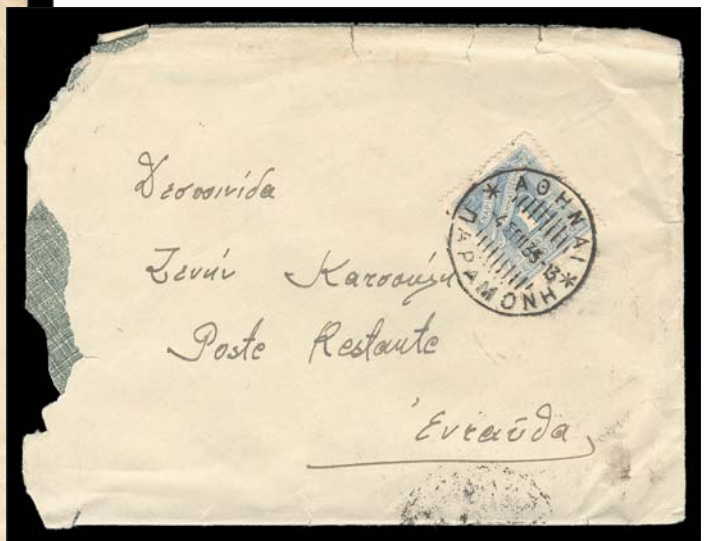 Δεσποινίδα
Ζενήν Κατσουλη
Poste Restante
Ἐνταῦθα
* ΑΘΗΝΑΙ *
ΠΑΡΑΜΟΝΗ